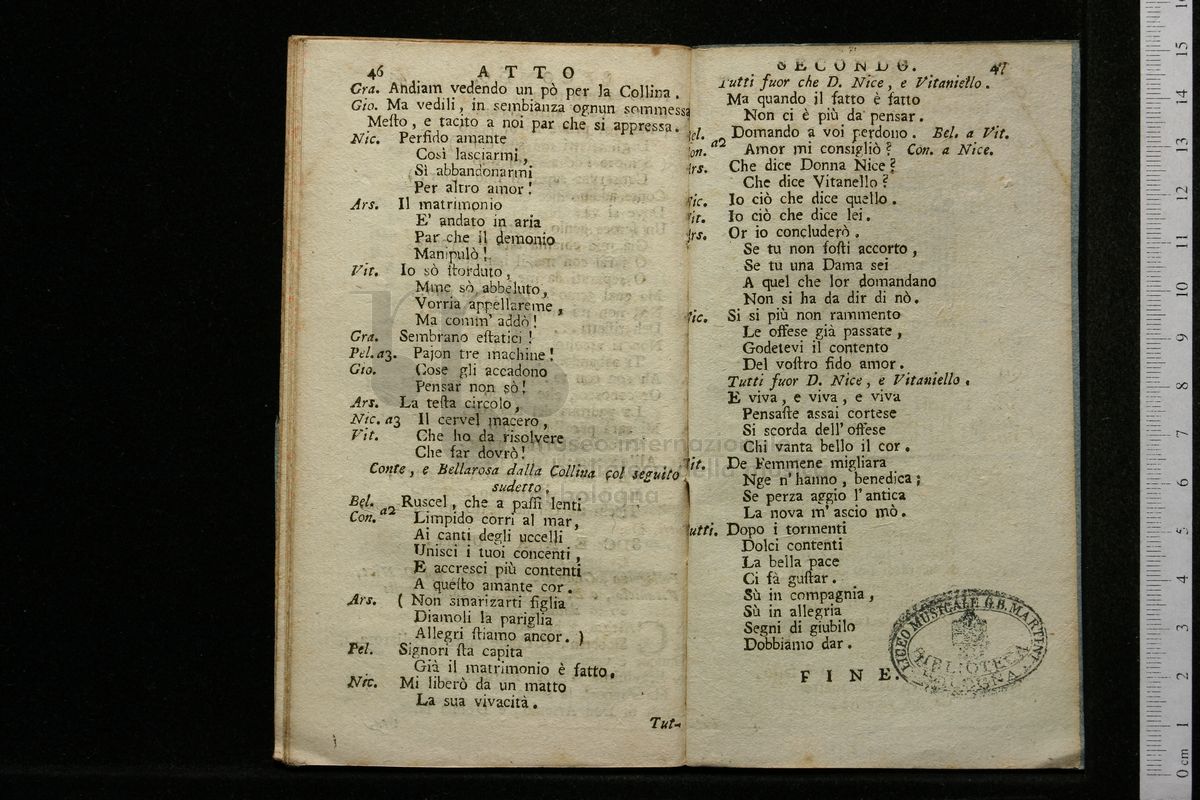 46 ATTO
Gra. Andiam vedendo un pò per la Collina.
Gio. Ma vedili, in sembianza ognun sommessa
Mesto, e tacito a noi par che si appressa.
Nic. Perfido amante
Così lasciarmi,
Sì abbandonarmi
Per altro amor!
Ars. Il matrimonio
E' andato in aria
Par che il demonio
Manipulò!
Vit. Io sò storduto,
Mme sò abbeluto,
Vorria appellareme,
Ma comm' addò!
Gra. Sembrano estatici!
Pel. a3. Pajon tre machine!
Gio. Cose gli accadono
Pensar non sò!
Ars. La testa circolo,
Nic. a3 Il cervel macero,
Vit. Che ho da risolvere
Che far dovrò!
Conte, e Bellarosa dalla Collina col seguito
sudetto.
Bel. a2 Ruscel, che a passi lenti
Con. Limpido corri al mar,
Ai canti degli uccelli
Unisci i tuoi concenti,
E accresci più contenti
A questo amante cor.
Ars. ( Non smarizarti figlia
Diamoli la pariglia
Allegri stiamo ancor. )
Pel. Signori sta capita
Già il matrimonio è fatto.
Nic. Mi liberò da un matto
La sua vivacità.
Tut-
SECONDO. 47
Tutti fuor che D. Nice, e Vitaniello.
Ma quando il fatto è fatto
Non ci è più da pensar.
Bel. a2 Domando a voi perdono. Bel. a Vit.
Con. Amor mi consigliò? Con. a Nice.
Ars. Che dice Donna Nice?
Che dice Vitanello?
Nic. Io ciò che dice quello.
Vit. Io ciò che dice lei.
Ars. Or io concluderò.
Se tu non fosti accorto,
Se tu una Dama sei
A quel che lor domandano
Non si ha da dir di nò.
Nic. Si si più non rammento
Le offese già passate,
Godetevi il contento
Del vostro fido amor.
Tutti fuor D. Nice, e Vitaniello.
E viva, e viva, e viva
Pensaste assai cortese
Si scorda dell' offese
Chi vanta bello il cor.
Vit. De Femmene migliara
Nge n' hanno, benedica;
Se perza aggio l' antica
La nova m' ascio mò.
Tutti. Dopo i tormenti
Dolci contenti
La bella pace
Ci fà gustar.
Sù in compagnia,
Sù in allegria
Segni di giubilo
Dobbiamo dar.
FINE.
LICEO MUSICALE G.B. MARTINI
BIBLIOTECA
BOLOGNA
museo internazionale
della musica
bologna
0 cm 1 2 3 4 5 6 7 8 9 10 11 12 13 14 15